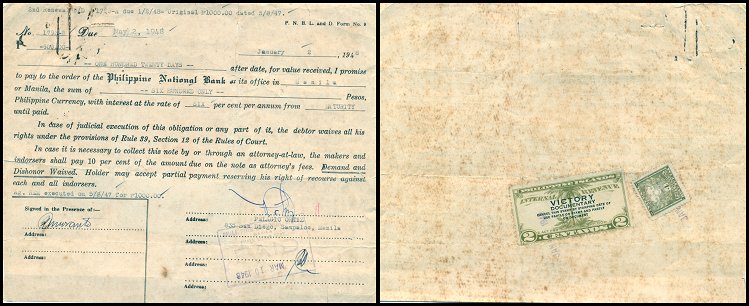 2nd Renewal due 1/2/48- Original P1000.00 dated 5/8/47.
P. N. B. L. and D. Form No. 9
No. Due May 2, 1948
January 2 , 194
-- ONE HUNDRED TWENTY DAYS -- after date, for value received, I promise
to pay to the order of the Philippine National Bank at its office in Manila
or Manila, the sum of -- SIX HUNDRED ONLY -- Pesos,
Philippine Currency, with interest at the rate of SIX per cent per annum from MATURITY
until paid.
In case of judicial execution of this obligation or any part of it, the debtor waives all
rights under the provisions of Rule 39, Section 12 of the Rules of Court.
In case it is necessary to collect this note by or through an attorney-at-law, the makers and
indorsers shall pay 10 per cent of the amount due on the note as attorney's fees. Demand and
Dishonor Waived. Holder may accept partial payment reserving his right of recourse against
each and all indorsers.
executed on 5/8/47 for P1000.00.
Signed in the Presence of:—
Address:
Address:
Address:
Address:
Address:
Manila
MAR 10 1948
INTERNAL REVENUE
VICTORY
DOCUMENTARY
2 CENTAVOS 2